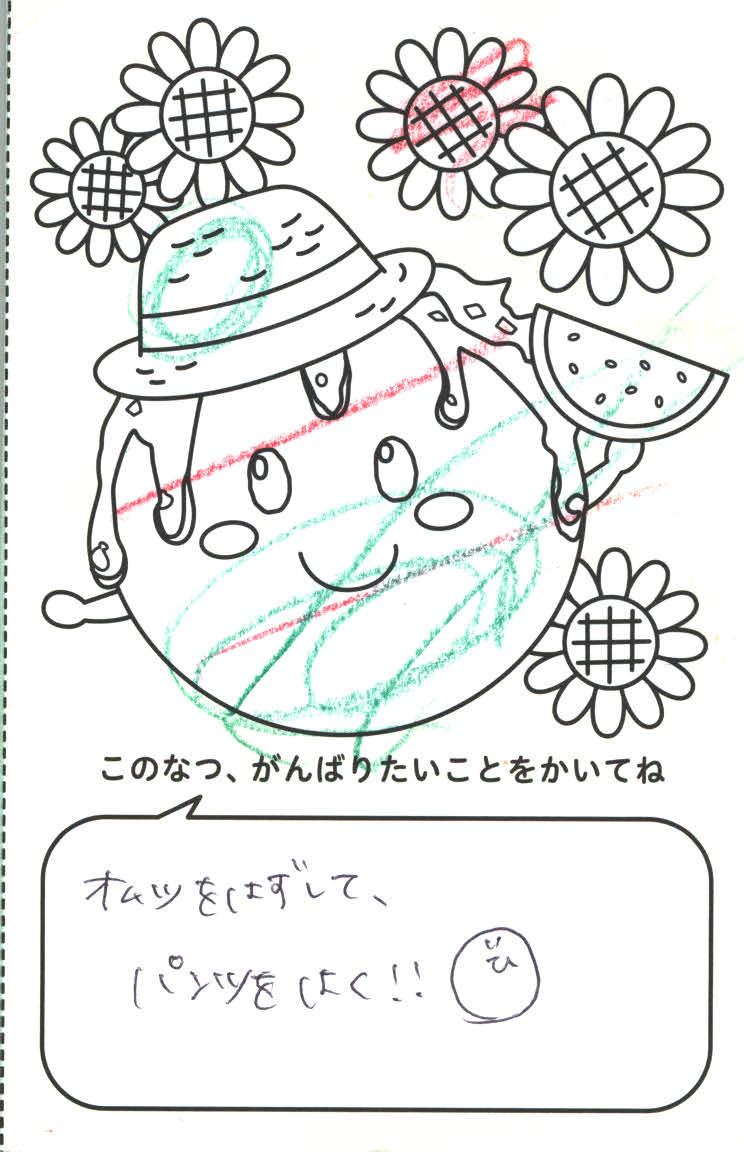 このなつ、がんばりたいことをかいてね
オムツをはずして、
パンツをはく!!